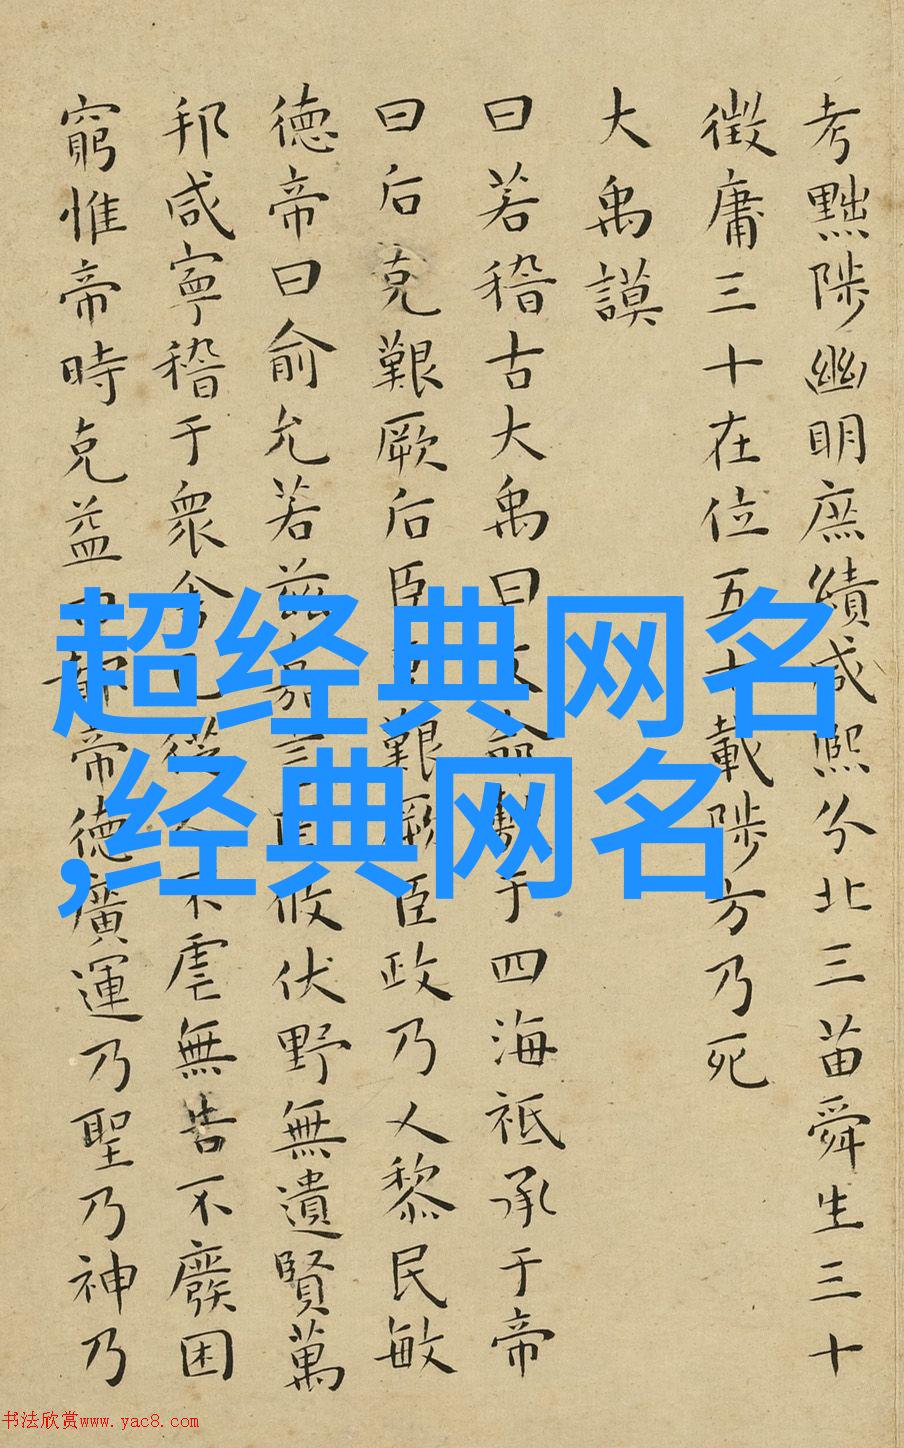 考黜陟幽明庶績咸熙分北三苗舜生三十
徵庸三十在位五十載陟方乃死
大禹謨
曰若稽古大禹曰文命敷于四海祗承于帝
曰后克艱厥后臣克艱厥臣政乃乂黎民敏
德帝曰俞允若茲嘉言罔攸伏野無遺賢萬
邦咸寧稽于衆舍己從人不虐無告不廢困
窮惟帝時克益曰都帝德廣運乃聖乃神乃
超经典网名
,经典网名
书法欣赏www.yac8.com